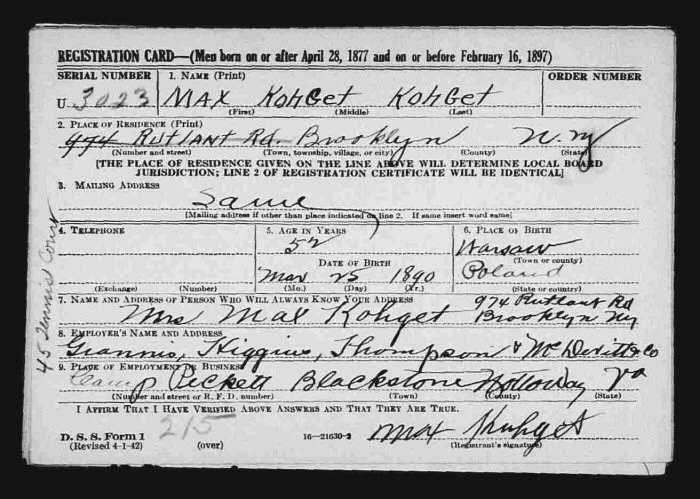 REGISTRATION CARD—(Men born on or after April 28, 1877 and on or before February 16, 1897)
SERIAL NUMBER 1. NAME (Print) ORDER NUMBER
U 3023 MAX KOHGET KOHGET
(First) (Middle) (Last)
2. PLACE OF RESIDENCE (Print)
974 RUTLANT Rd. Brooklyn N.Y
(Number and street) (Town, township, village, or city) (County) (State)
[THE PLACE OF RESIDENCE GIVEN ON THE LINE ABOVE WILL DETERMINE LOCAL BOARD
JURISDICTION; LINE 2 OF REGISTRATION CERTIFICATE WILL BE IDENTICAL]
3. MAILING ADDRESS
Same
[Mailing address if other than place indicated on line 2. If same insert word same]
4. TELEPHONE 5. AGE IN YEARS 6. PLACE OF BIRTH
52 Warsaw
(Town or county)
DATE OF BIRTH Poland
Mar 25 1890
(Exchange) (Number) (Mo.) (Day) (Yr.) (State or country)
7. NAME AND ADDRESS OF PERSON WHO WILL ALWAYS KNOW YOUR ADDRESS 974 Rutlant Rd
Mrs Max Kohget Brooklyn Ny
8. EMPLOYER'S NAME AND ADDRESS
Giannis, Higgins, Thompson & McDevitt & Co
9. PLACE OF EMPLOYMENT OR BUSINESS
Camp Pickett Blackstone Va
(Number and street or R. F. D. number) (Town) (County) (State)
I AFFIRM THAT I HAVE VERIFIED ABOVE ANSWERS AND THAT THEY ARE TRUE.
215
D. S. S. Form 1
(Revised 4-1-42) (over) 16—21630-2 Max Kohget
(Registrant's signature)
45 Tennis Court